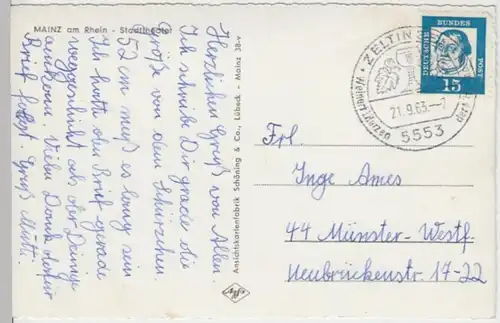 MAINZ am Rhein - Stadttheater
Herzlichen Gruß von Allen.
Ich schreibe Dir grade die
Größe von dem Schürzchen.
52 cm muß es lang sein
Ich hatte den Brief gerade
weggeschickt als der Deinige
ankam. Vielen Dank dafür
Brief folgt. Gruß Mutti.
Ansichtskartenfabrik Schöning & Co., Lübeck - Mainz 38-v
DEUTSCHE BUNDES POST
15
ZELTIN
21.9.63-7
5553
Frl.
Inge Ames
44 Münster-Westf.
Neubrückenstr. 17-22